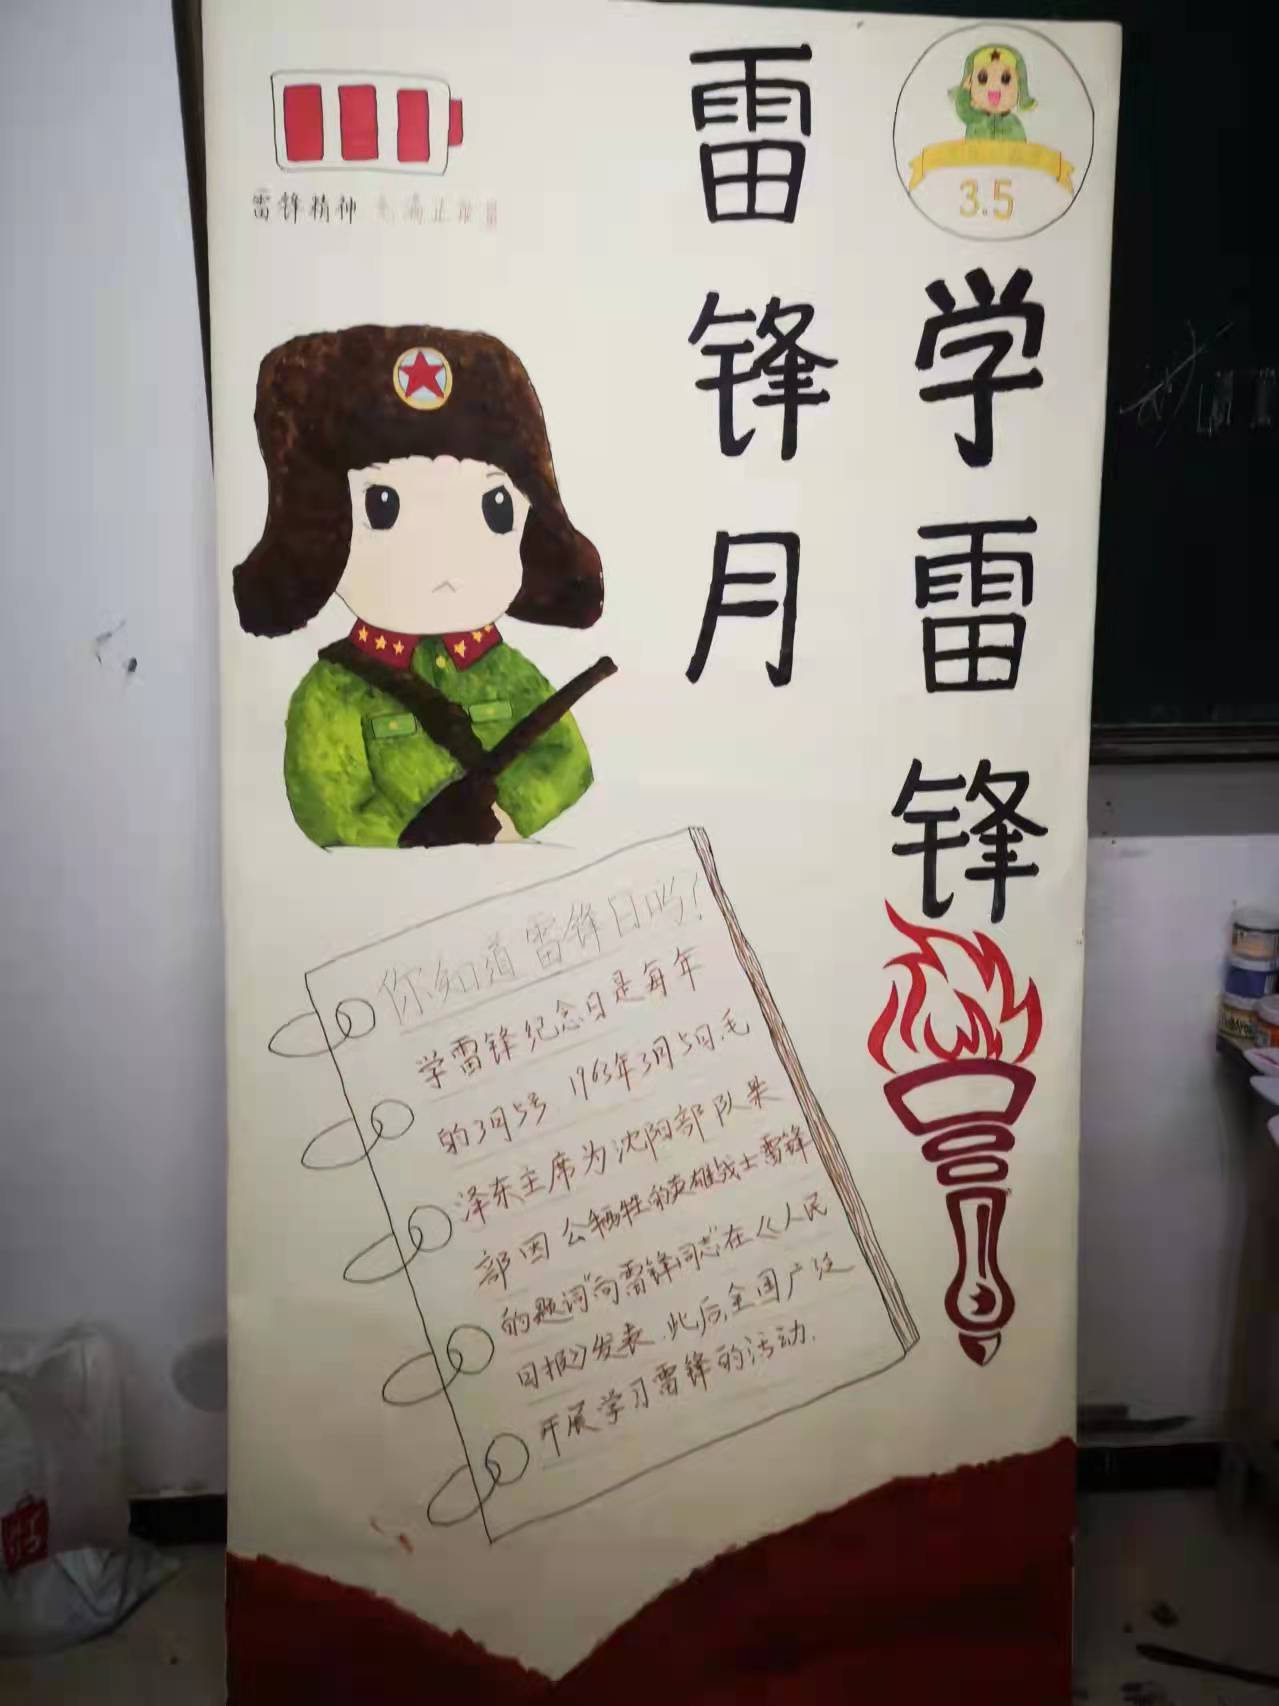 学雷锋
雷锋月
3.5
雷锋精神 充满正能量
你知道雷锋日吗?
学雷锋纪念日是每年
的3月5号.1963年3月5日.毛
泽东主席为沈阳部队某
部因公牺牲的英雄战士雷锋
的题词"向雷锋同志"在《人民
日报》发表.此后,全国广泛
开展学习雷锋的活动.